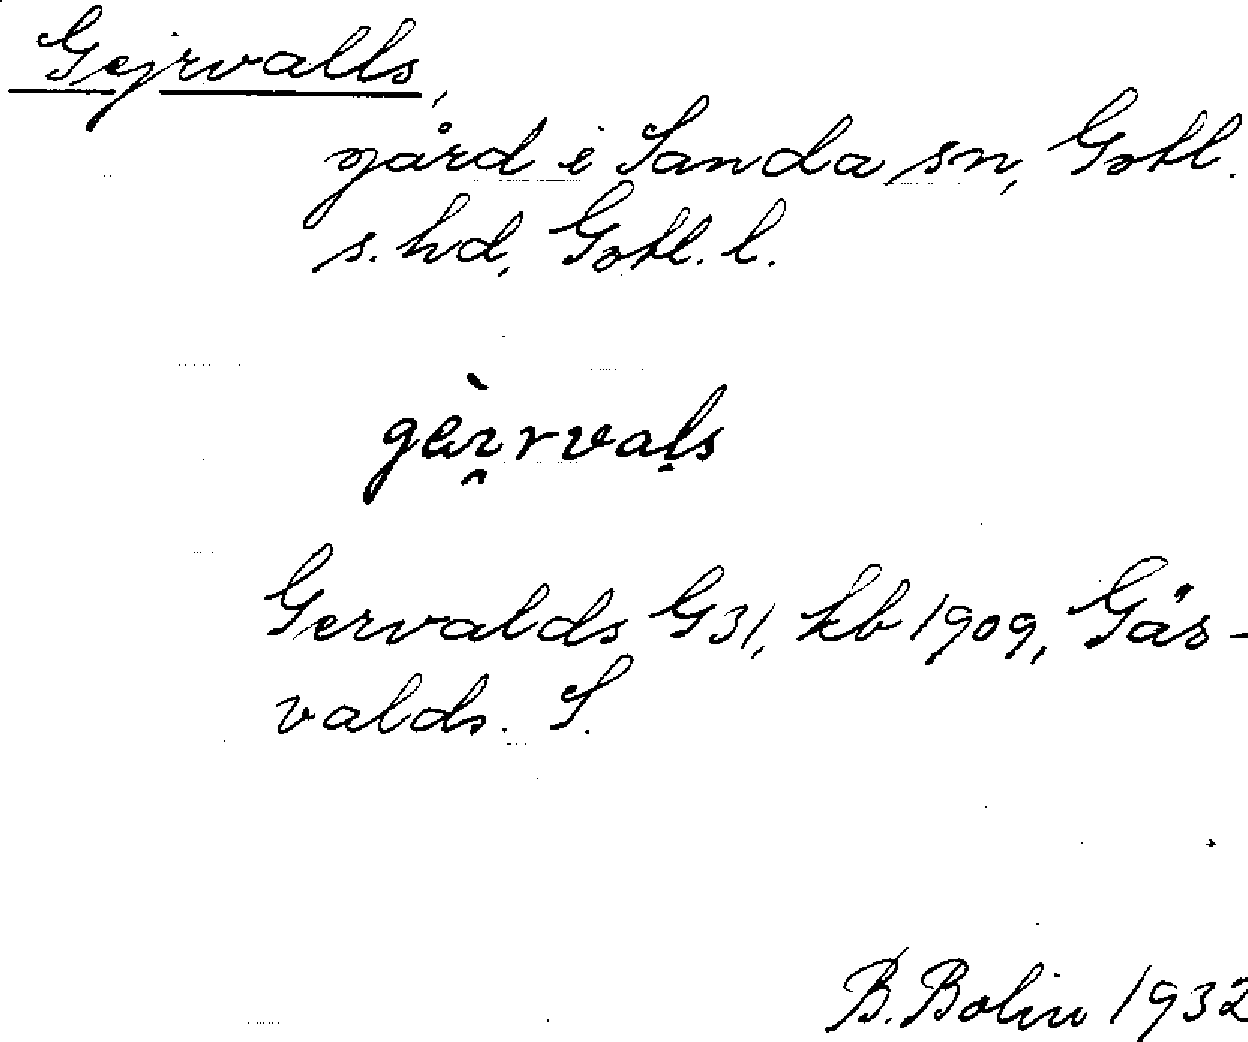 Gejrvalls,
gård i Sanda sn, Gotl.
s. hd, Gotl. l.
Gervalds G31, kb 1909, Gär-
valds. S.
B. Bolin 1932